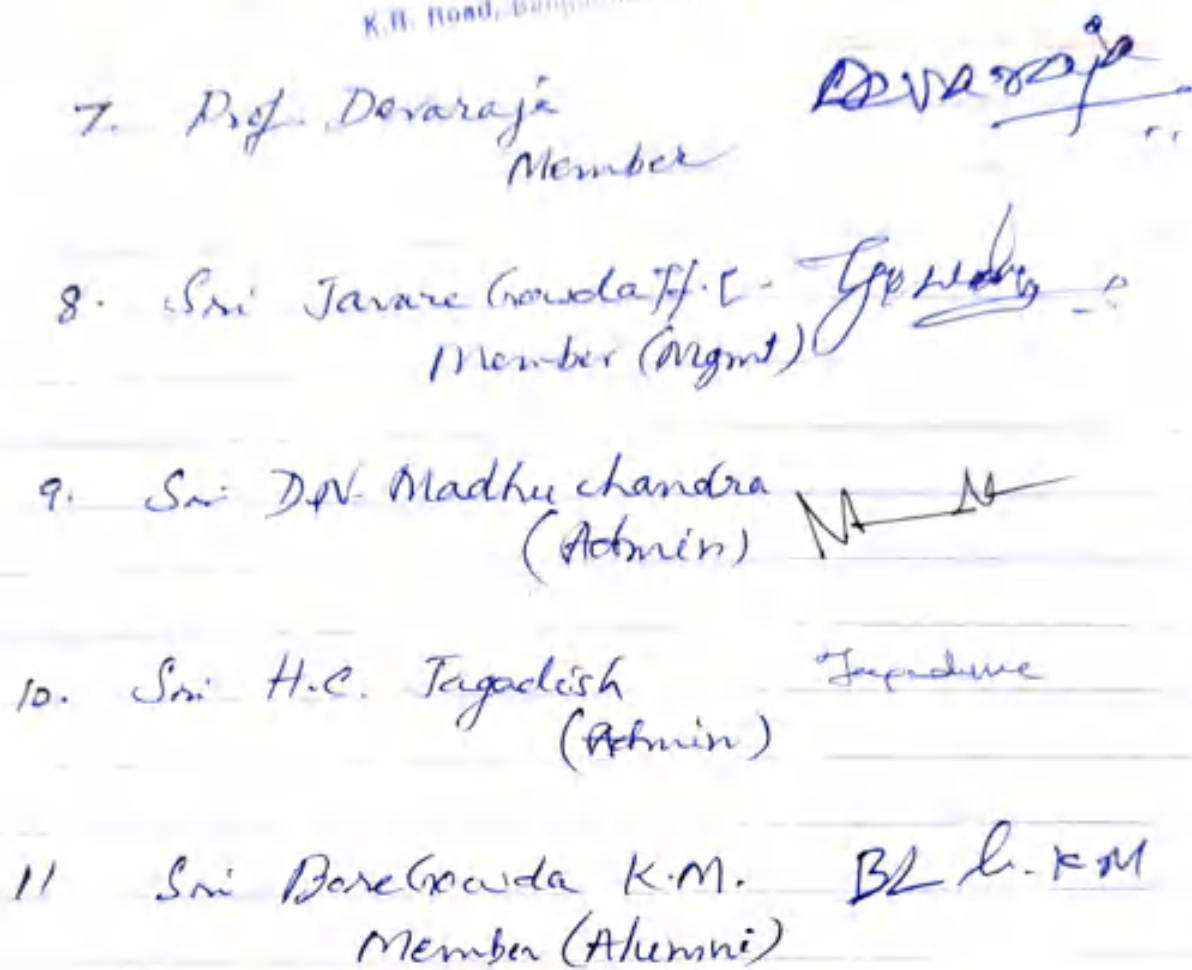 K.R. Road,
7. Prof. Devaraja Devaraja
Member
8. Sri Javare Gowda H.C. Gowda
Member (Mgmt)
9. Sri D.N. Madhu chandra
(Admin)
10. Sri H.C. Jagadish
(Admin)
11 Sri Bore Gowda K.M. K M
Member (Alumni)